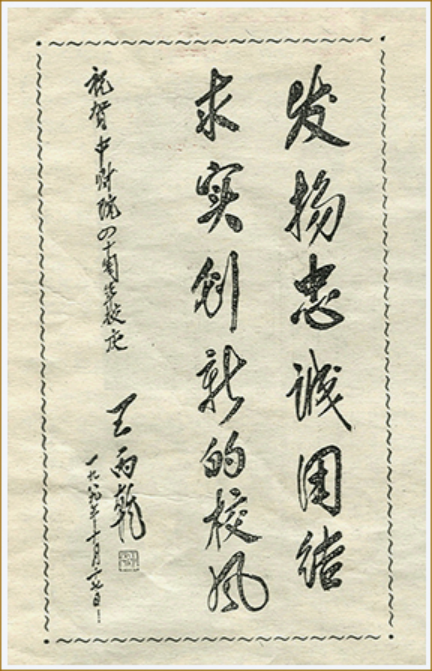 发扬忠诚团结
求实创新的校风
祝贺中财院四十周年校庆
王丙乾
一九八九年十月二十七日